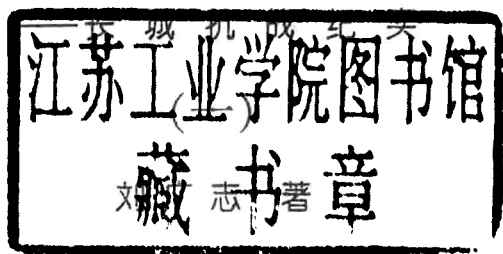 ——长城抗战纪实
江苏工业学院图书馆
藏书章
志 著